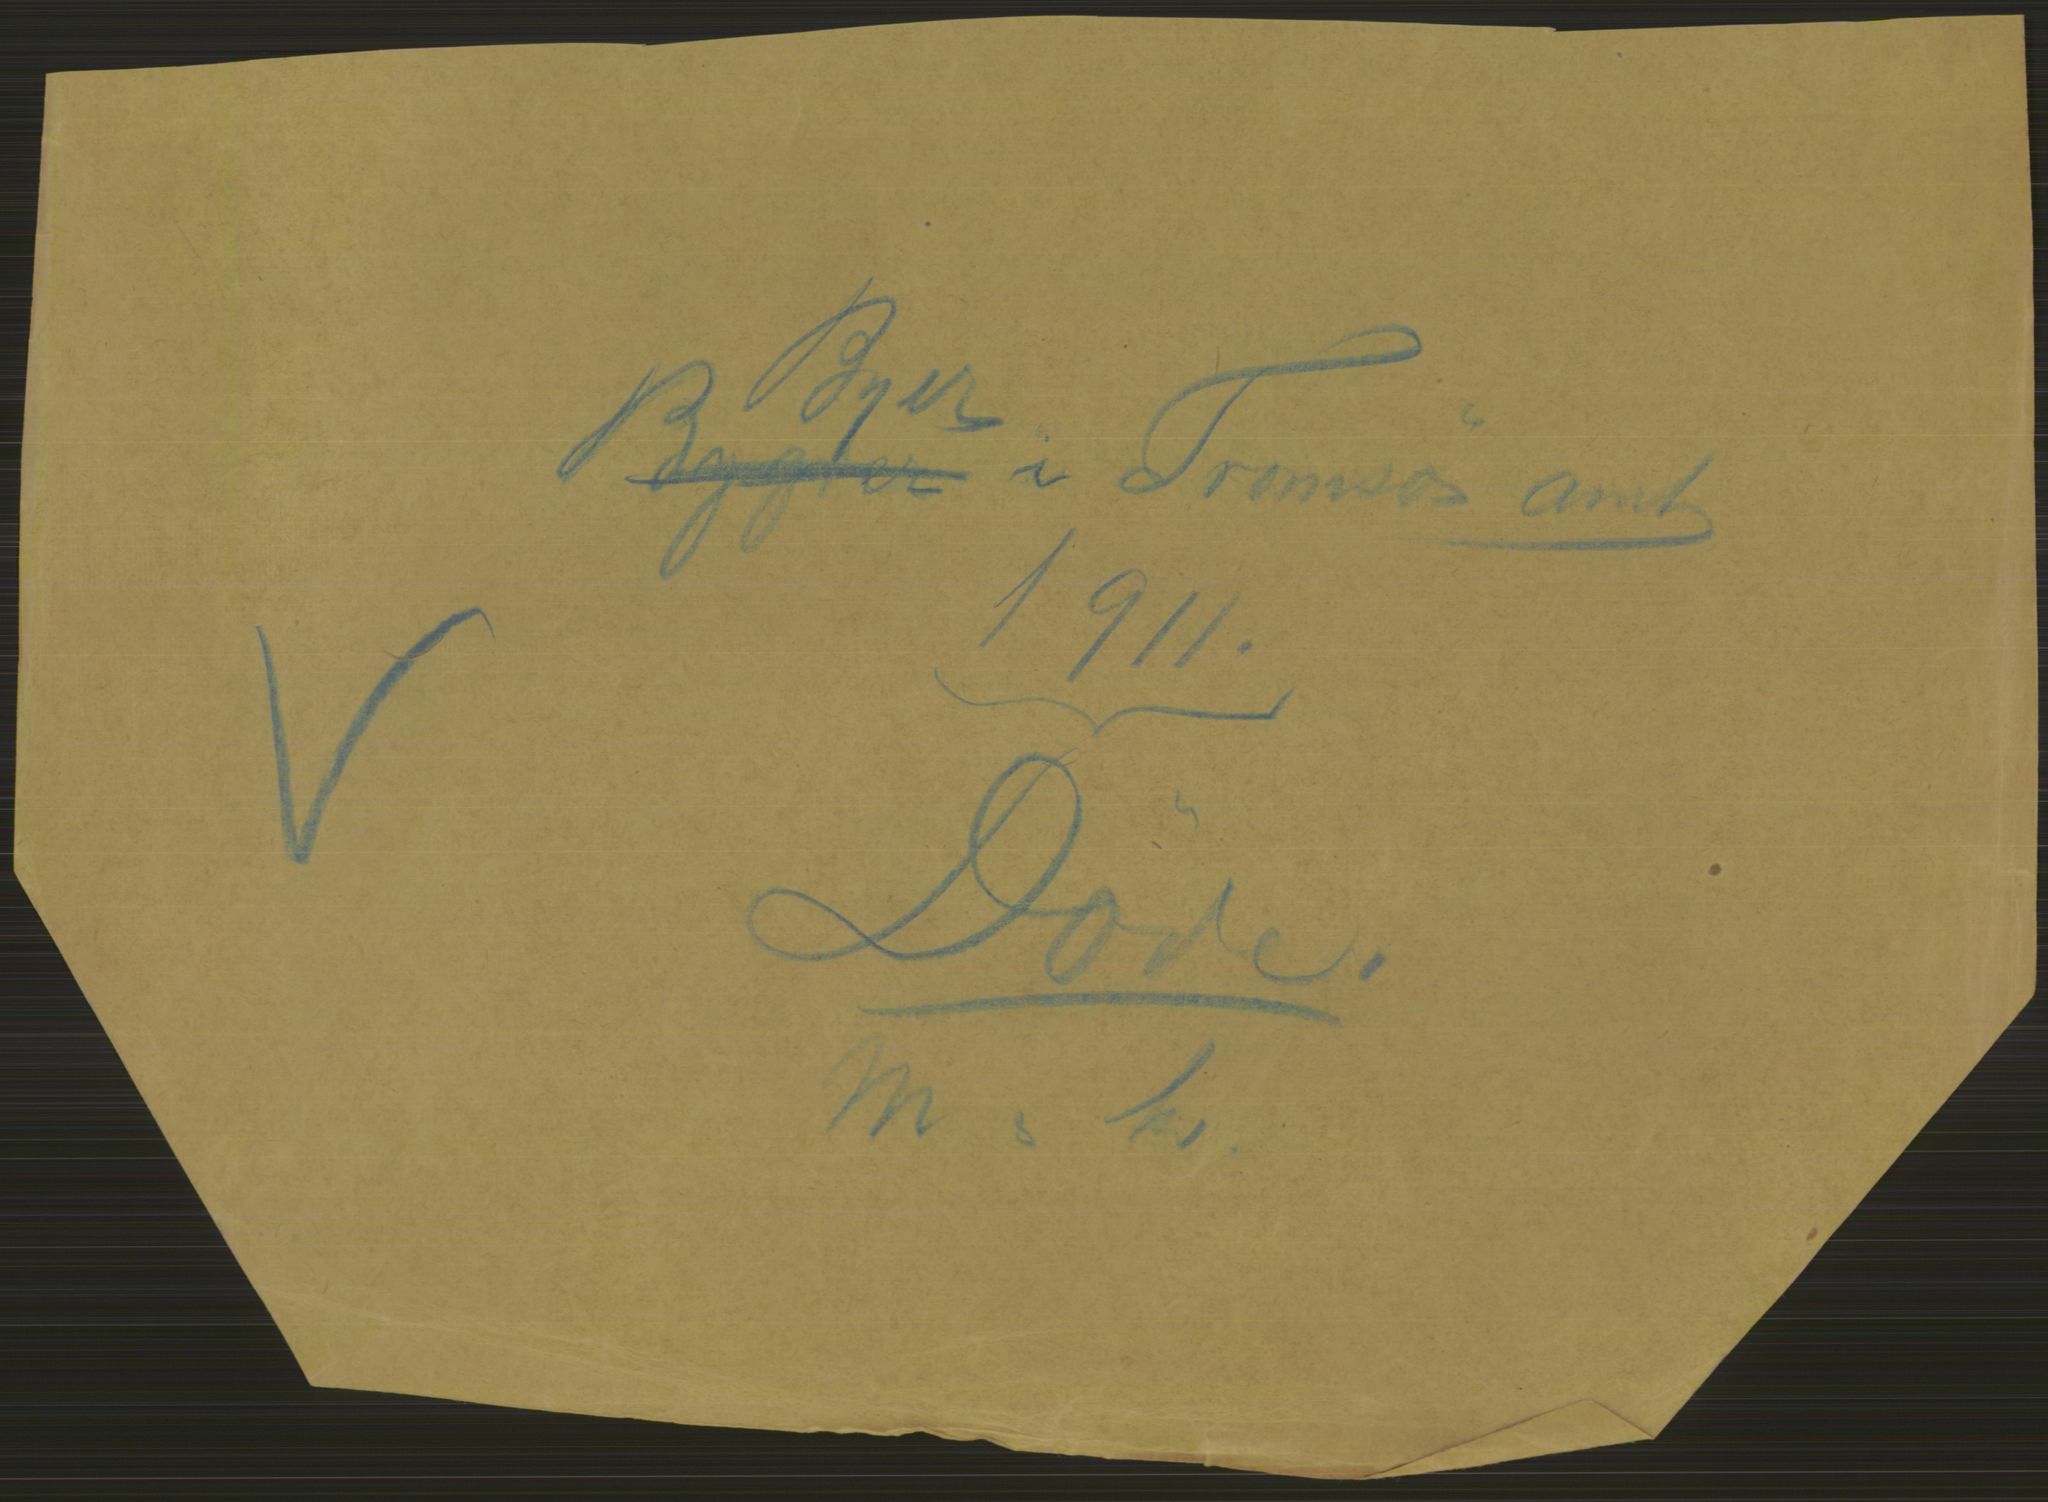 Byer
Bygder i Tromsö amt
1911.
V
Döde.
M. k.